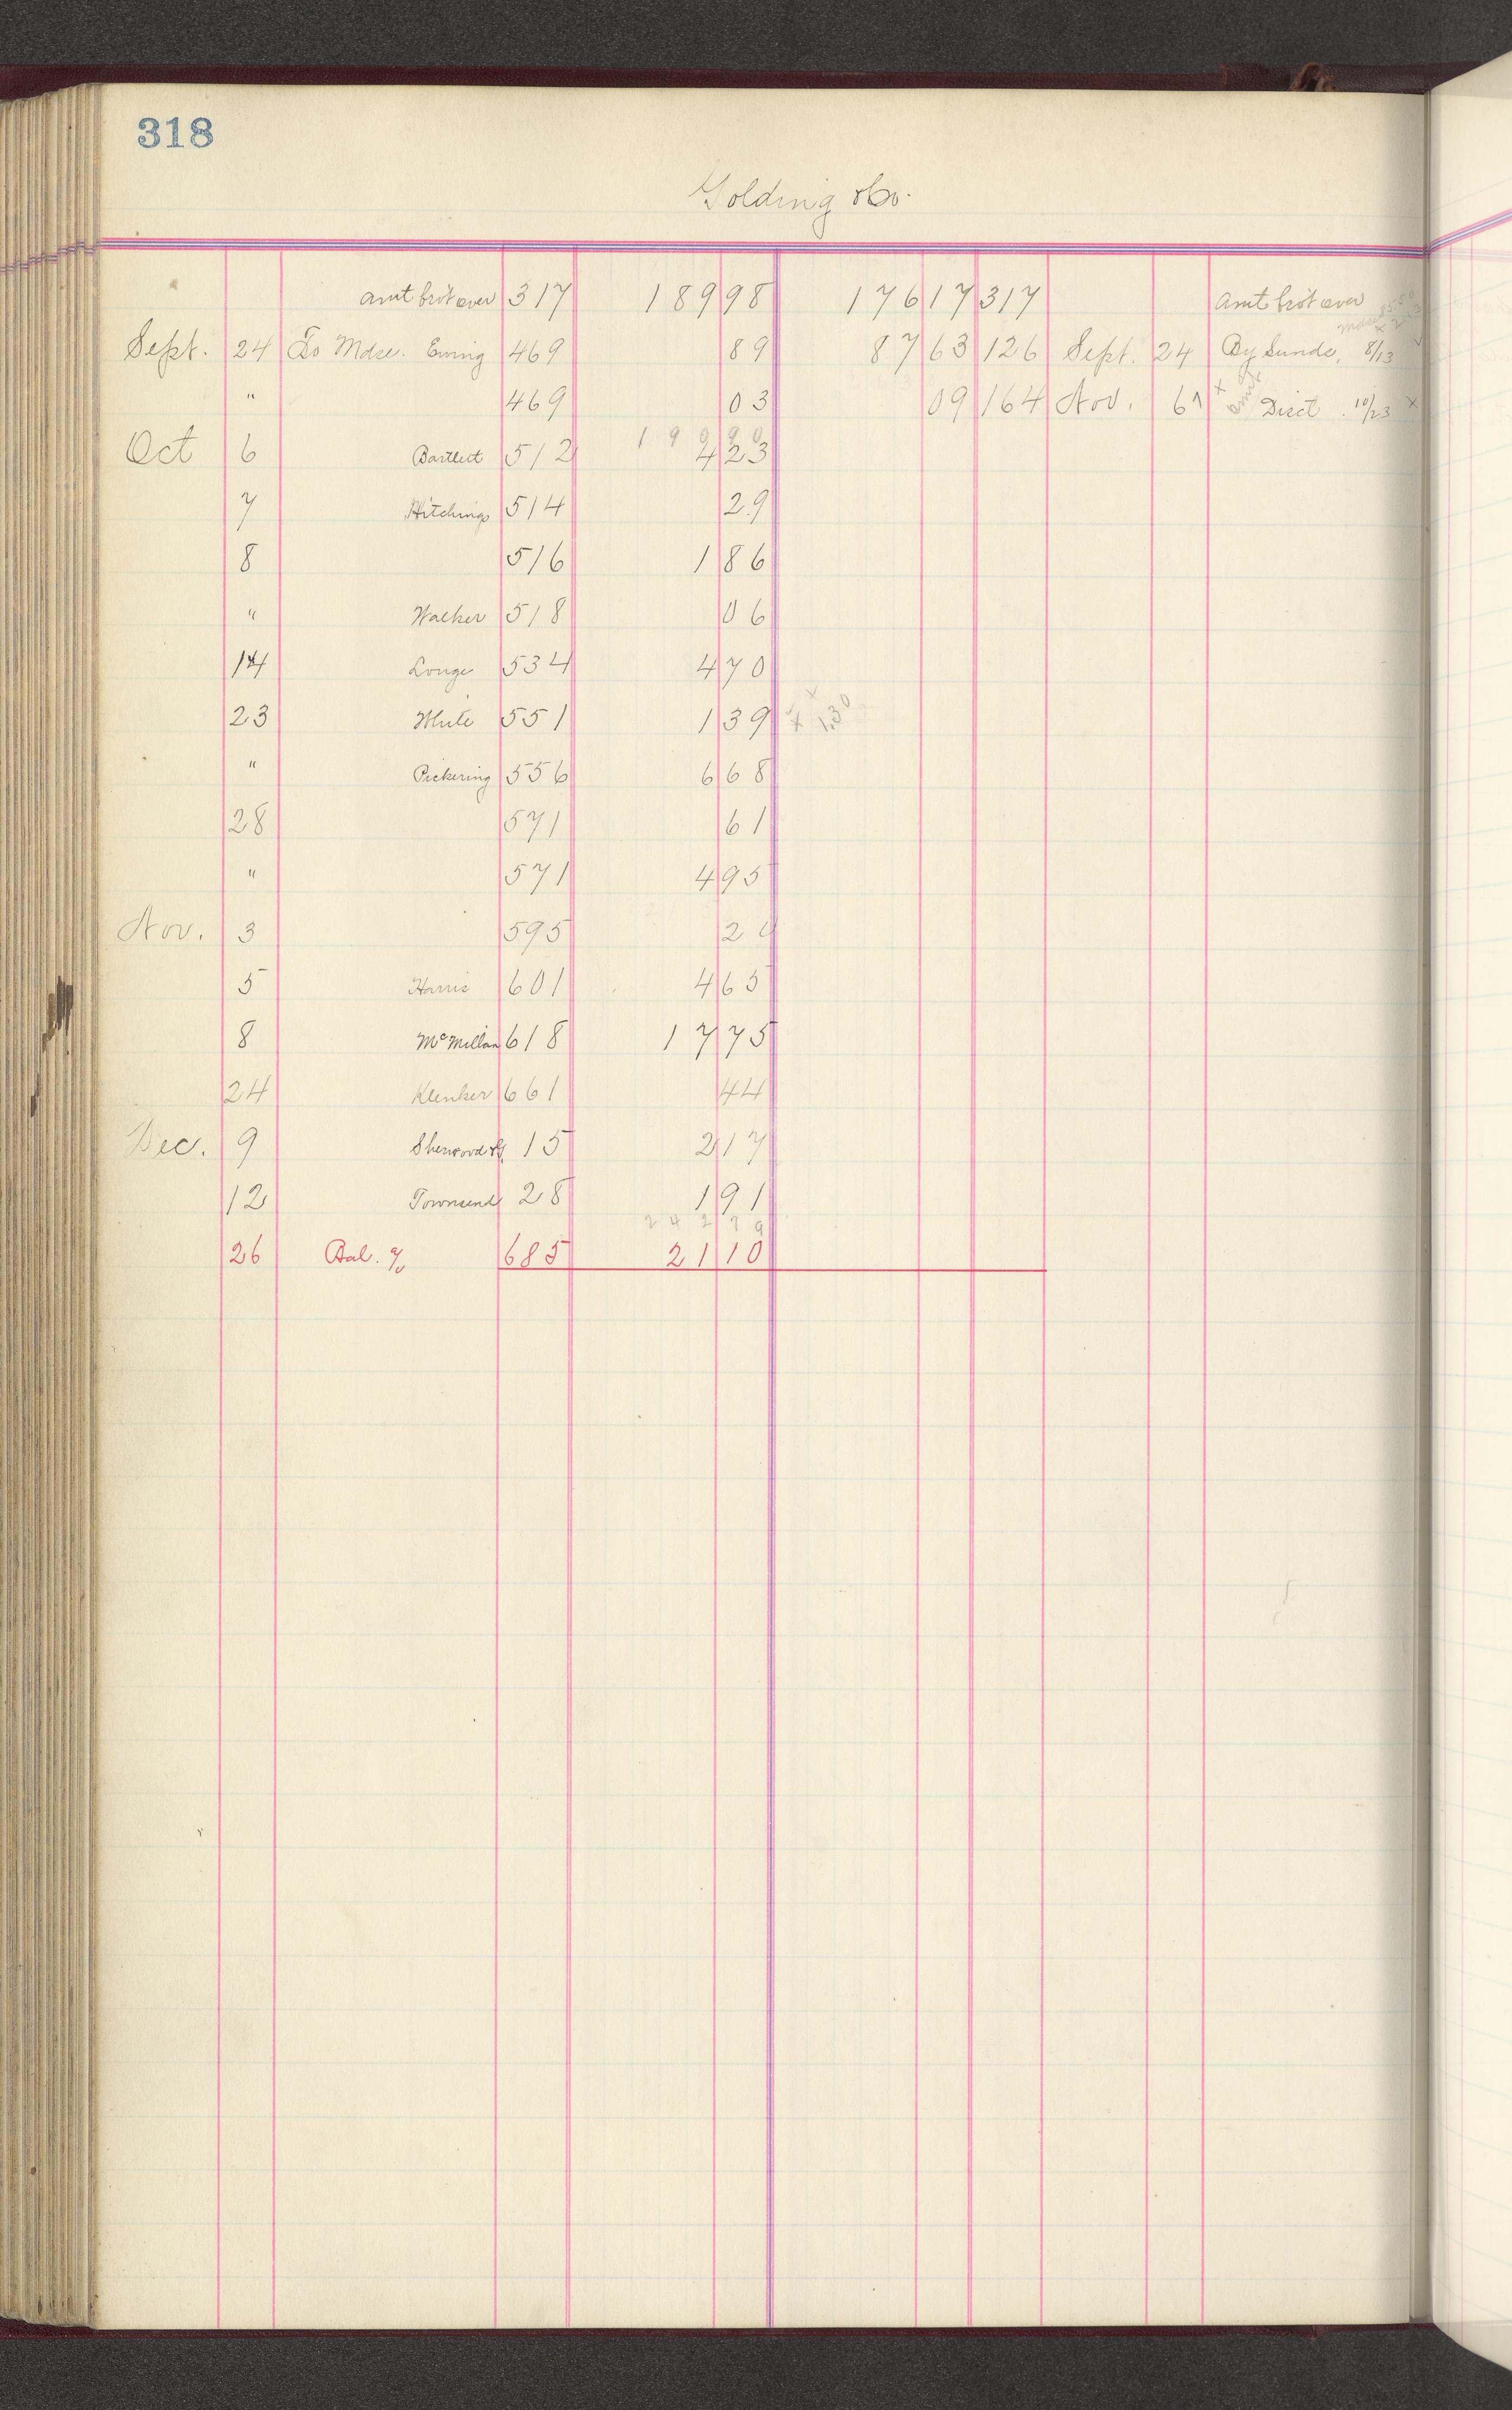 318
Golding & Co.
amt brot over 317 189 98 176 17 317 amt brot over
Sept. 24 To Mdse. Ewing 469 89 87 63 126 Sept. 24 By Sunds, 8/13
" 469 03 09 164 Nov. 6 Disct. 10/23 x
190 90
Oct 6 Bartlett 512 4 23
7 Hitchings 514 29
8 516 1 86
" Walker 518 06
14 Longe 534 4 70
23 White 551 1 39 x 1.30
" Pickering 556 6 68
28 571 61
" 571 4 95
Nov. 3 595 20
5 Harris 601 4 65
8 McMillan 618 17 75
24 Klenker 661 44
Dec. 9 Sherwood 15 2 17
12 Townsend 28 1 91
242 79
26 Bal. 685 21 10